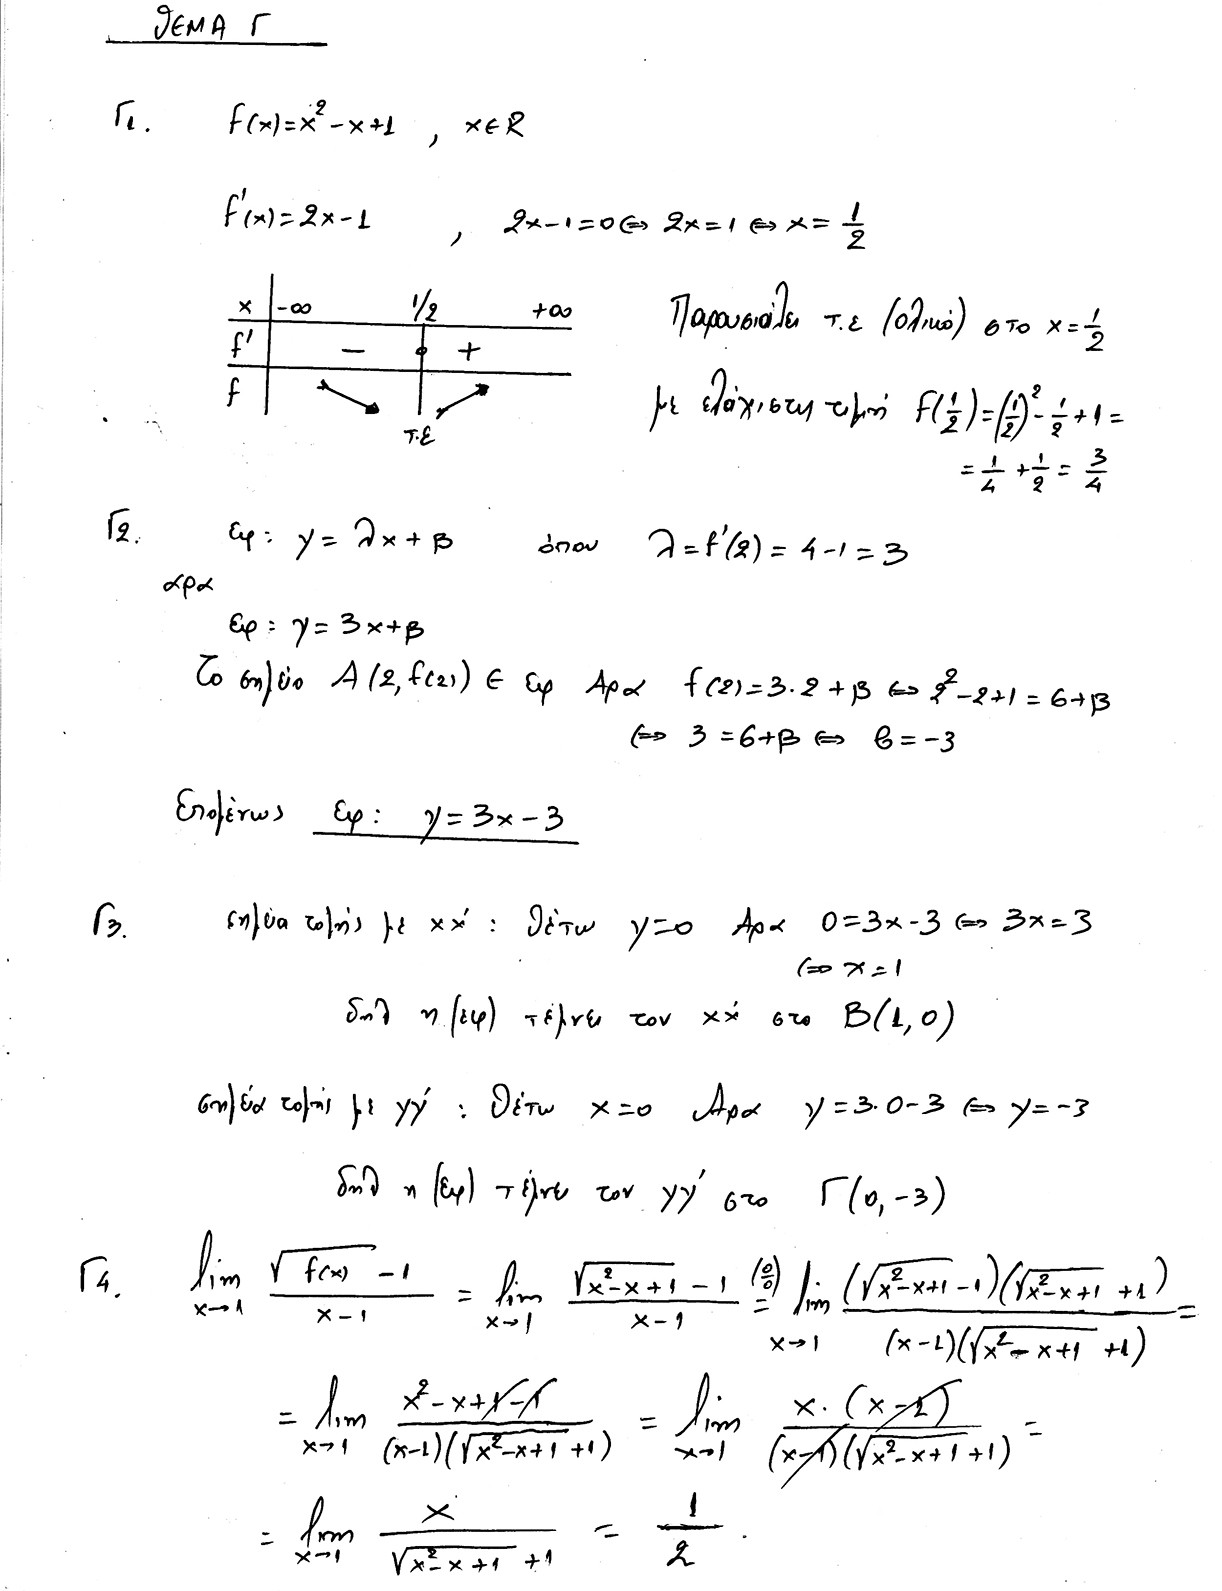 ΘΕΜΑ Γ
Γ1. f(x)=x²-x+1 , x∈R
f'(x)=2x-1 , 2x-1=0 ⇔ 2x=1 ⇔ x=1/2
x | -∞ 1/2 +∞
f' | - 0 +
f | ↘ ↗
Τ.Ε
Παρουσιάζει τ.ε (ολικό) στο x=1/2
με ελάχιστη τιμή f(1/2)=(1/2)²-1/2+1=
=1/4+1/2=3/4
Γ2. εφ: y=λx+β όπου λ=f'(2)=4-1=3
αρα
εφ: y=3x+β
Το σημείο A(2,f(2)) ∈ εφ Αρα f(2)=3·2+β ⇔ 2²-2+1=6+β
⇔ 3=6+β ⇔ β=-3
Επομένως εφ: y=3x-3
Γ3. σημεία τομής με xx' : Θέτω y=0 Αρα 0=3x-3 ⇔ 3x=3
⇔ x=1
δηλ η (εφ) τέμνει τον xx' στο Β(1,0)
σημεία τομής με yy' : Θέτω x=0 Αρα y=3·0-3 ⇔ y=-3
δηλ η (εφ) τέμνει τον yy' στο Γ(0,-3)
Γ4. lim x→1 (√f(x) -1)/(x-1) = lim x→1 (√(x²-x+1) -1)/(x-1) =(0/0) lim x→1 ((√(x²-x+1) -1)(√(x²-x+1) +1))/((x-1)(√(x²-x+1) +1)) =
= lim x→1 (x²-x+1-1)/((x-1)(√(x²-x+1) +1)) = lim x→1 (x·(x-1))/((x-1)(√(x²-x+1) +1)) =
= lim x→1 x/(√(x²-x+1) +1) = 1/2 .